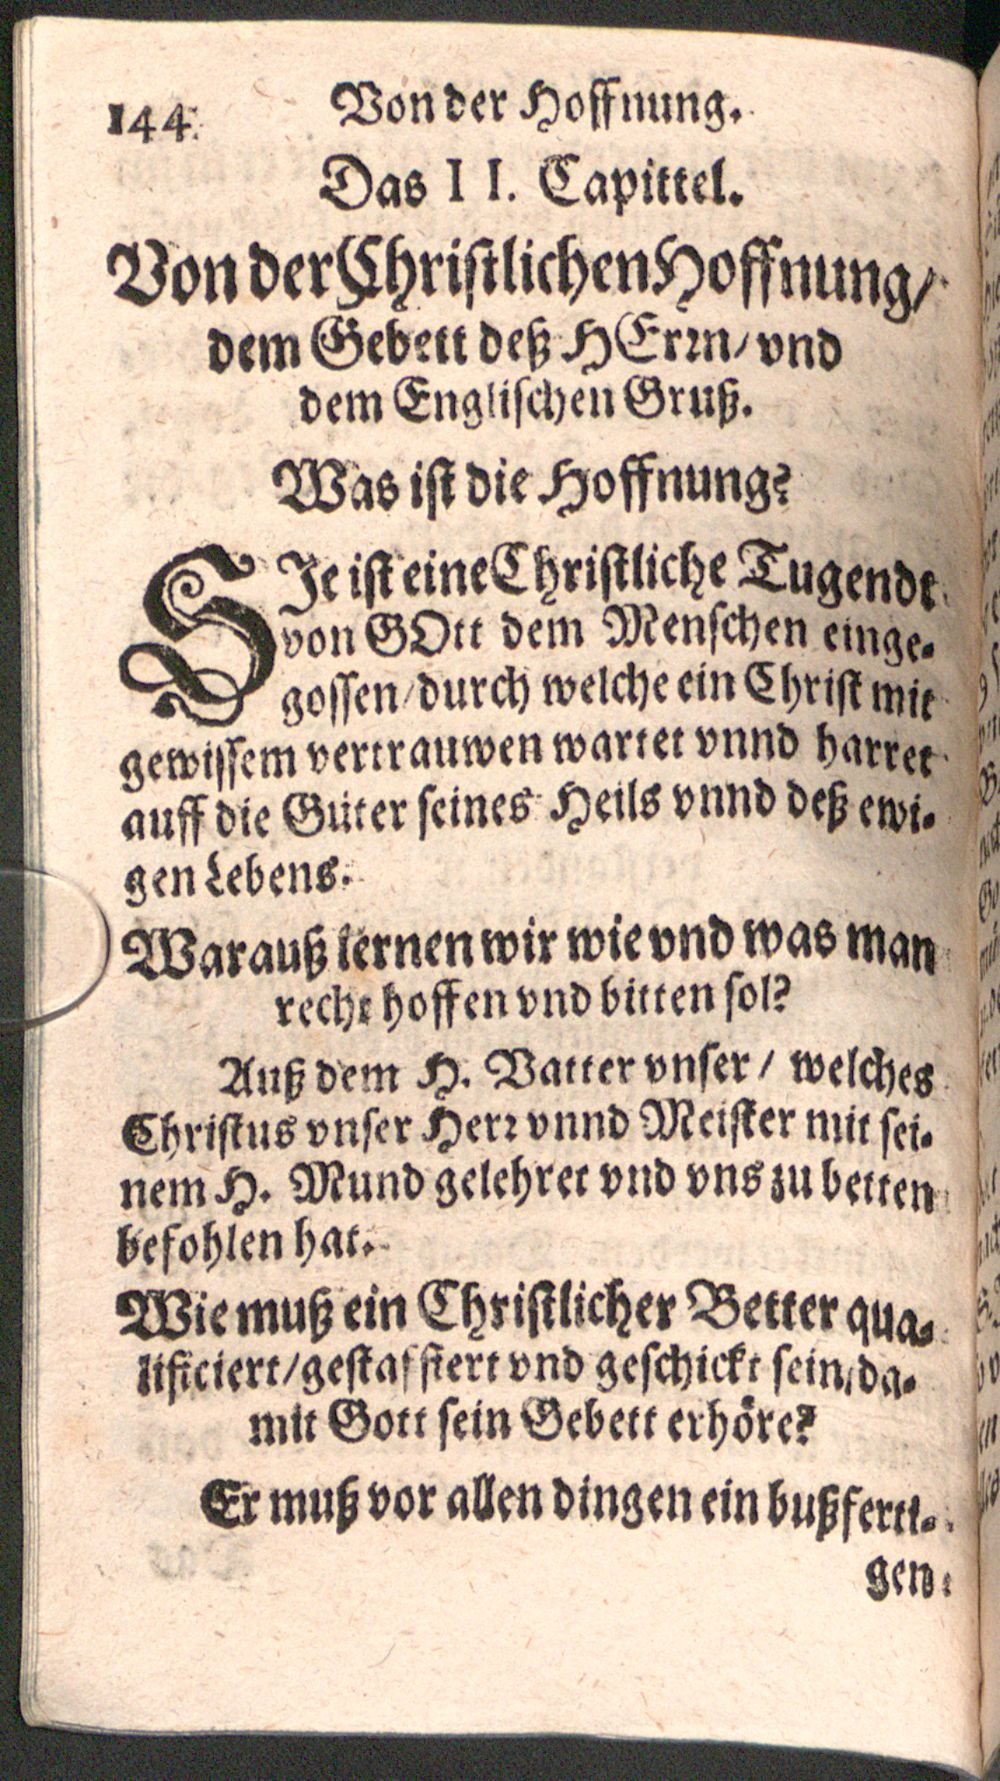 144. Von der Hoffnung.
Das II. Capittel.
Von der Christlichen Hoffnung/
dem Gebett deß HErrn/ vnd
dem Englischen Gruß.
Was ist die Hoffnung?
SJe ist eine Christliche Tugendt
von GOtt dem Menschen einge-
gossen/ durch welche ein Christ mit
gewissem vertrauwen wartet vnnd harret
auff die Güter seines Heils vnnd deß ewi-
gen Lebens.
Warauß lernen wir wie vnd was man
recht hoffen vnd bitten sol?
Auß dem H. Vatter vnser/ welches
Christus vnser Herr vnnd Meister mit sei-
nem H. Mund gelehret vnd vns zu betten
befohlen hat.
Wie muß ein Christlicher Better qua-
lificiert/ gestaffiert vnd geschickt sein/ da-
mit Gott sein Gebett erhöre?
Er muß vor allen dingen ein bußferti-
gen